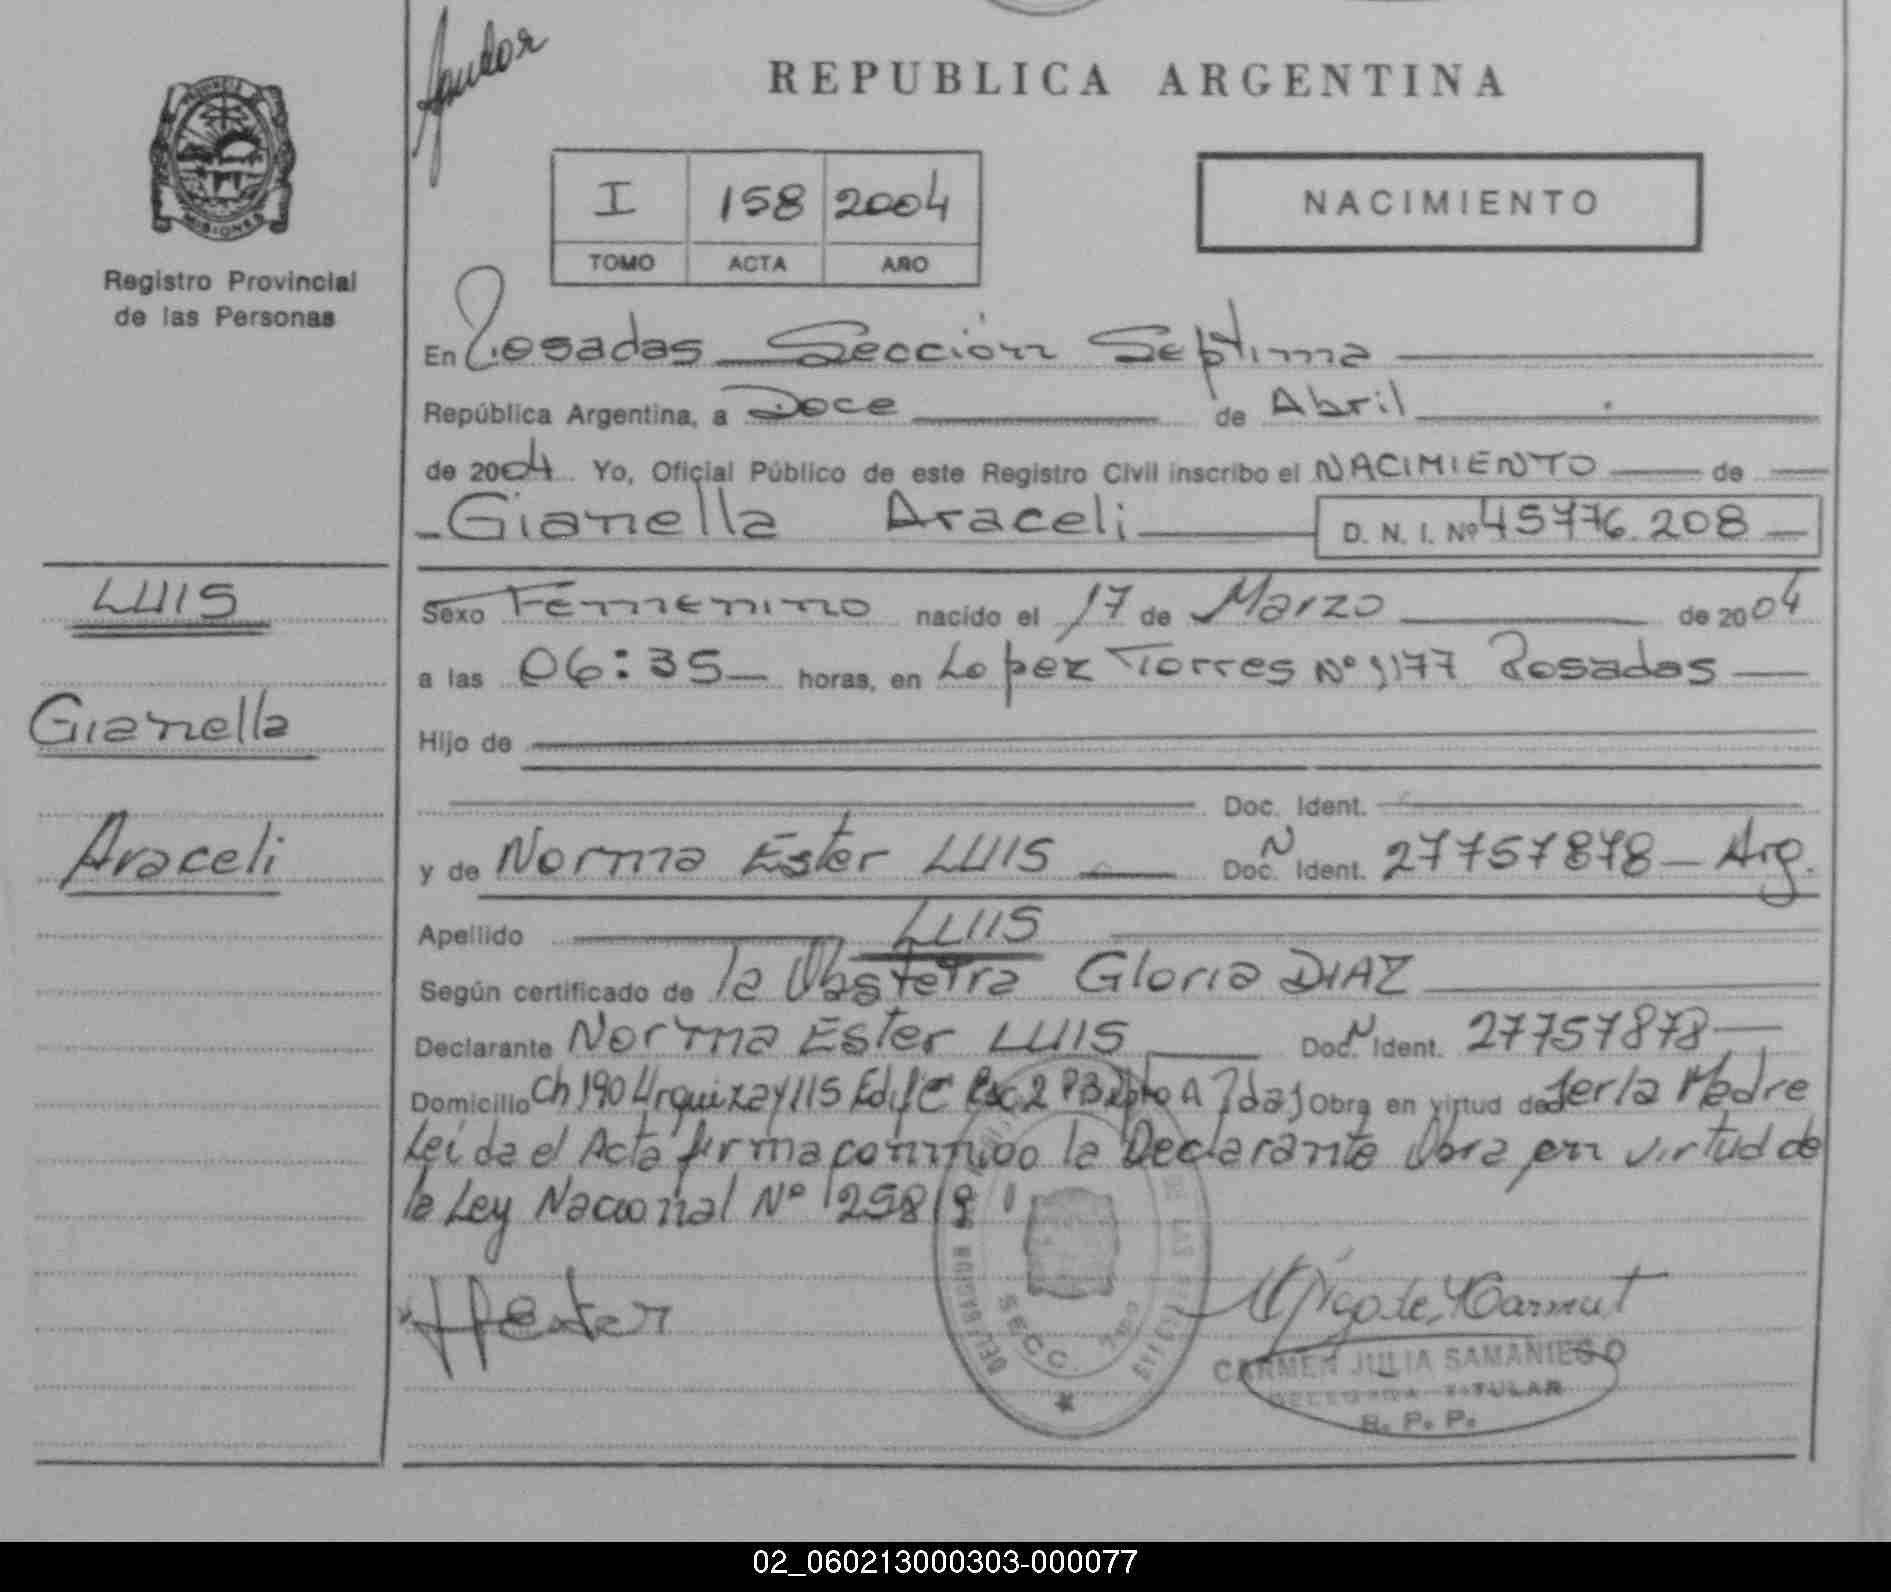 REPUBLICA ARGENTINA
PROVINCIA DE MISIONES
Registro Provincial
de las Personas
I 158 2004
TOMO ACTA AÑO
NACIMIENTO
En Posadas Sección Septima
República Argentina, a Doce de Abril
de 2004 Yo, Oficial Público de este Registro Civil inscribo el NACIMIENTO de
Gianella Araceli D. N. I. Nº 45776.208
LUIS
Gianella
Araceli
Sexo Femenino nacido el 17 de Marzo de 2004
a las 06:35 horas, en Lopez Torres Nº 1177 Posadas
Hijo de
Doc. Ident.
y de Norma Ester LUIS Doc. N Ident. 27757878 - Arg.
Apellido LUIS
Según certificado de la Obstetra Gloria DIAZ
Declarante Norma Ester LUIS Doc. N Ident. 27757878
Domicilio Ch 190 Urquiza y 115 Edif C Esc 2 PB Dpto A Pdas Obra en virtud de Ser la Madre
Leída el Acta firma conmigo la Declarante Obra en virtud de
la Ley Nacional Nº 25819
SECC. 7ma
CARMEN JULIA SAMANIEGO
DELEGADA TITULAR
R. P. P.
02_060213000303-000077